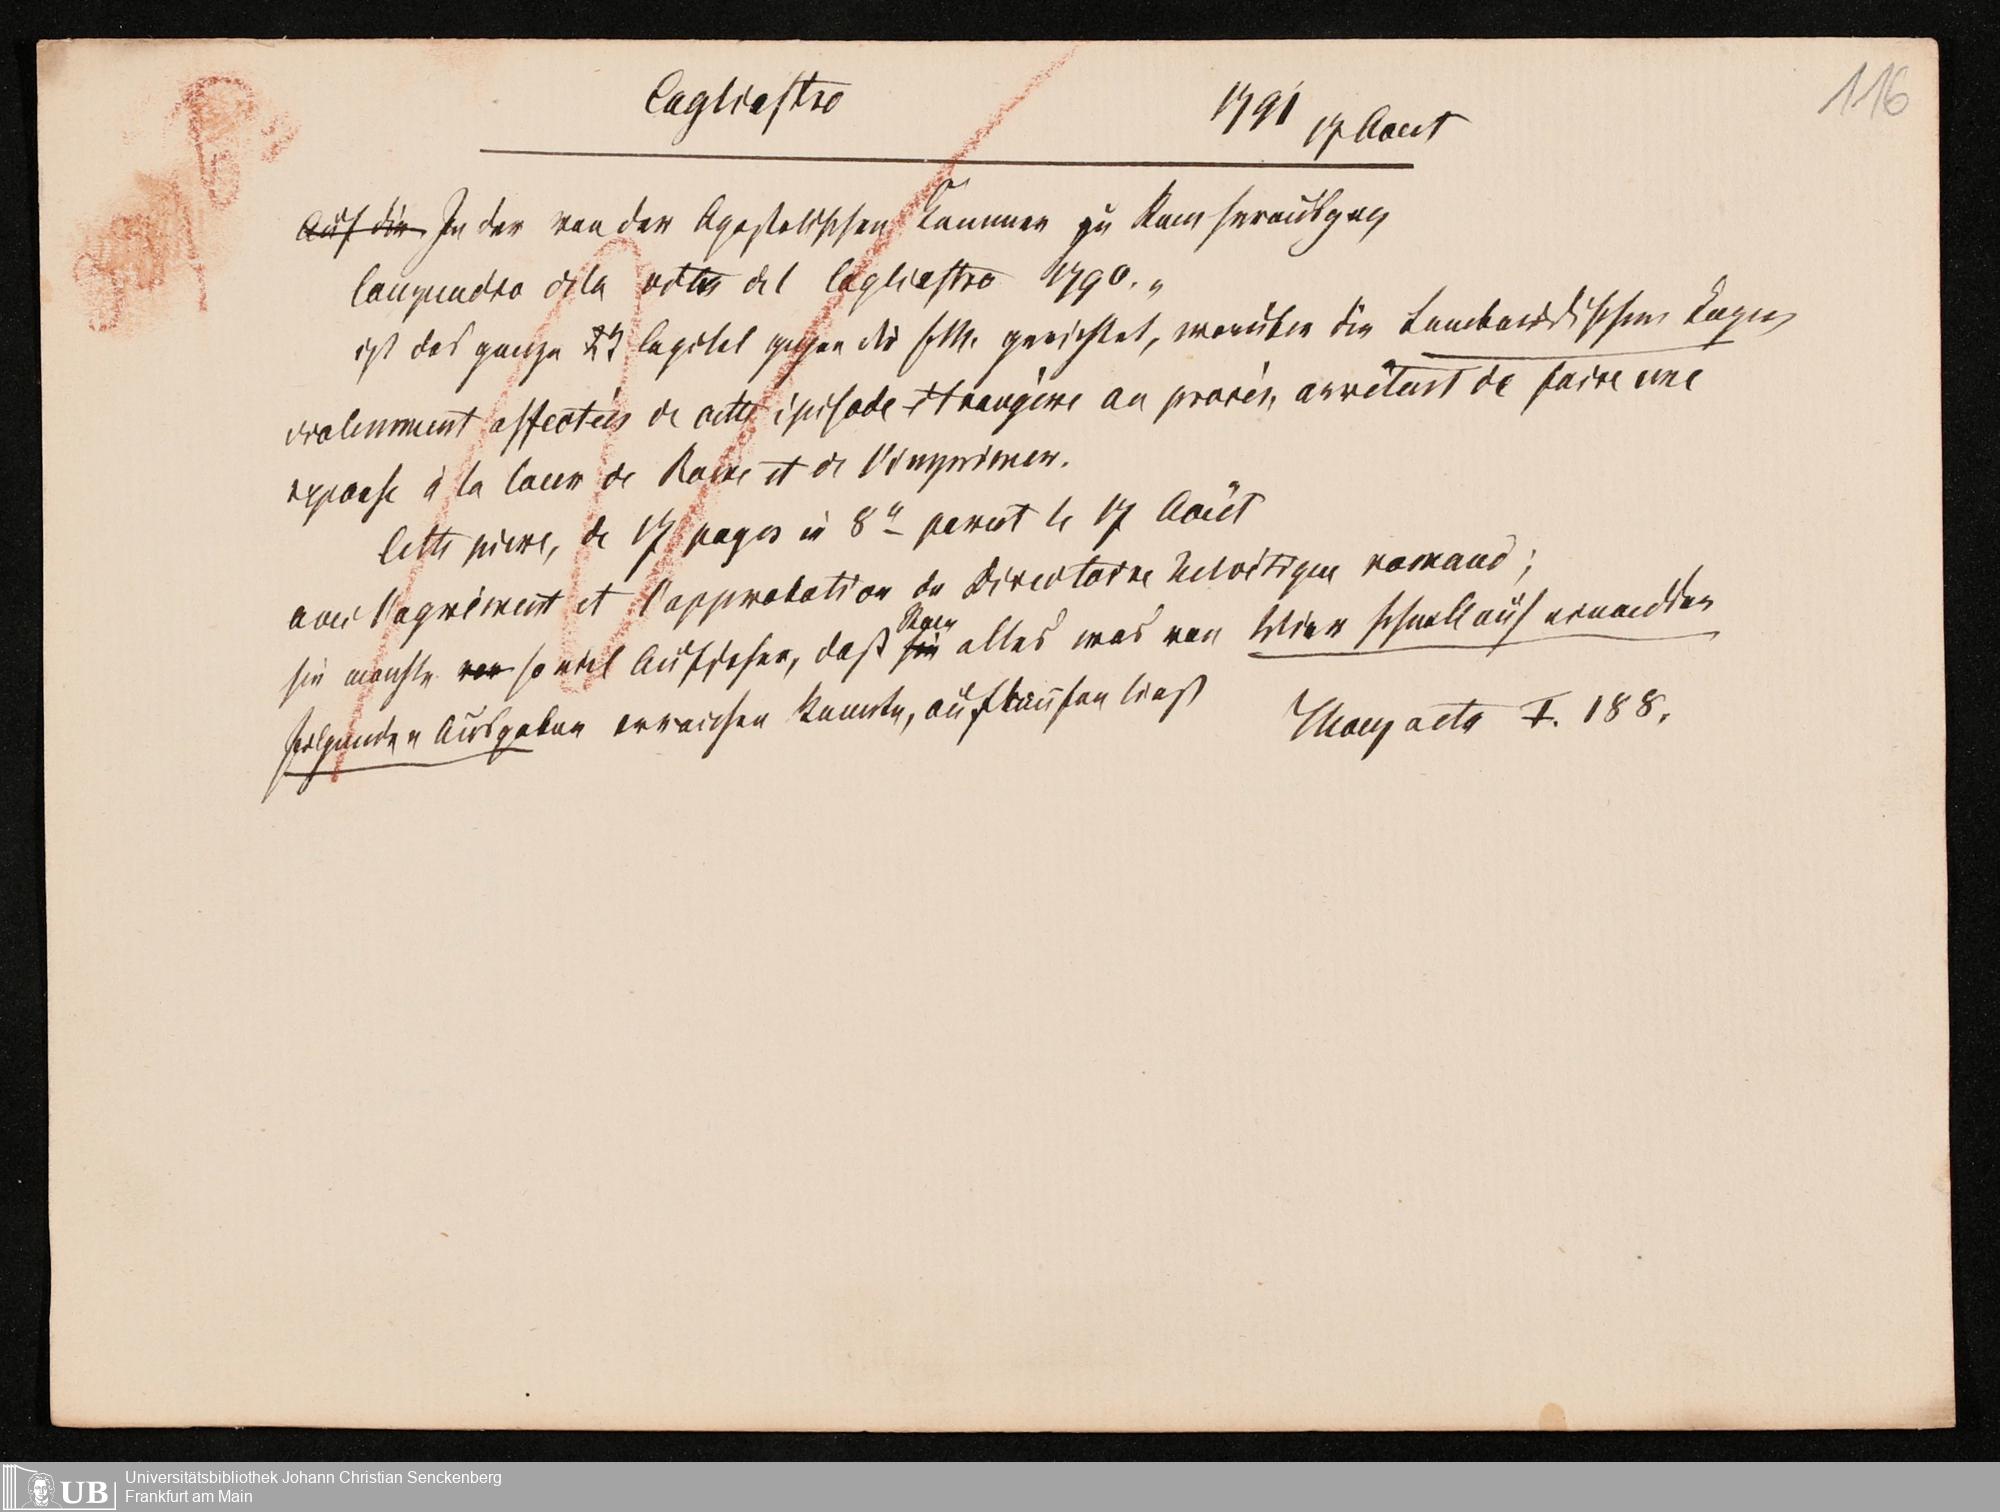 116
Cagliostro 1791 17 Aout
Auf die In der von der Apostolischen Kammer zu Rom herausgeg
Compendio dela vita del Cagliostro 1790. „
ist das ganze 23 Capitel gegen die gerichtet, worüber die Lombardischen Logen
violemment affectées de cette épisode étrangère au procès, arrêtent de faire une
reponse à la Cour de Rome et de l'imprimer.
Cette piece, de 17 pages in 8° parut le 17 Août
avec l'agrément et l'approbation du Directoire helvétique romand;
sie machte von so viel Aufsehen, daß sie Rom alles was von
folgenden Ausgaben erreichen konnte, aufkaufen ließ
Thory acta I. 188.
Universitätsbibliothek Johann Christian Senckenberg
Frankfurt am Main
UB